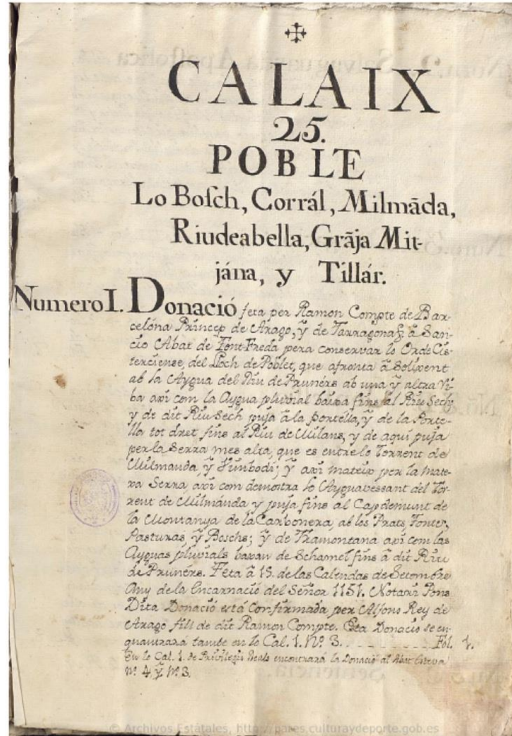 CALAIX
25.
POBLE
Lo Bosch, Corrál, Milmāda,
Riudeabella, Grāja Mit-
jána, y Tillár.
Numero I. Donació feta per Ramon Compte de Bar-
celóna Princep de Arago, ÿ de Tarragona à San-
cio Abat de Font-Freda pera conservar lo Orde Cis-
terciense, del Lloch de Poblet, que afronta à Solixent
ab la Aygua del Riu de Pruners ab una ÿ altra Ri-
ba axi com la Aygua pluvial baixa fins al Riu Sech,
ÿ de dit Riu Sech puja à la portella, ÿ de la Porte-
lla tot dret fins al Riu de Milans, ÿ de aqui puja
per la Serra mes alta, que es entre lo Torrent de
Milmanda ÿ Vimbodi; ÿ axi mateix per la mate-
xa Serra axi com demostra lo Ayguavessant del Tor-
rent de Milmánda ÿ puja fins al Capdemunt de
la Montanya de la Carbonera ab les Prats, Fonts,
Pasturas ÿ Boschs; ÿ de Tramontana axi com las
Ayguas pluvials baxan de fins à dit Riu
de Prunérs. Feta à 15. de las Calendas de Setembre
Any de la Encarnació del Señor 1151. Notari Pons
Dita Donació està Confirmada per Alfons Rey de
Arago fill de dit Ramon Compte. Esta Donació se en-
quantrará també en lo Cal. 1. Nº 3. Fol. 1.
En lo Cal. 1. de Privilegis Reals encontrará la Donació al Abat Esteva
nº 4. ÿ Nº 3.
© Archivos Estatales, http://pares.culturaydeporte.gob.es